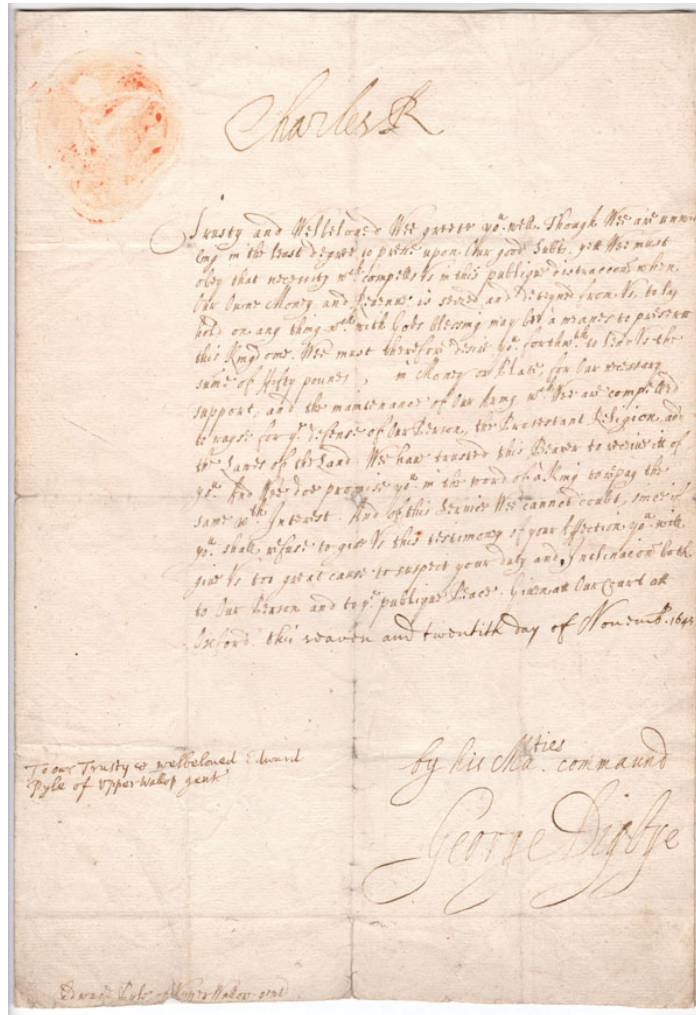 Charles R
Trusty and Welbeloved Wee greete yo.u well. Though Wee are unwil
ling in the least degree to presse upon Our good Subts. yett Wee must
obey that necessity wch. compells Us in this publique distraccon when
Our Owne Money and Revenue is seized and deteyned from Us, to lay
hold on any thing wch. with Gods blessing may be a meanes to preserve
this Kingdome. Wee must therefore desire yo.u forthwth. to lend Us the
summe of fifty pounds, in Money or Plate, for Our necessary
support, and the maintenance of Our Army wch. Wee are compelled
to rayse for ye. defense of Our Person, the Protestant Religion, and
the Lawes of the Land. Wee have trusted this Bearer to receive itt of
yo.u And Wee doe promise yo.u in the word of a King to repay the
same wth. Interest. And of this Service Wee cannot doubt, since if
yo.u shall refuse to give Us this testimony of your Affection yo.u will
give Us too great cause to suspect your duty and Inclinacion both
to Our Person and to ye. publique Peace. Given att Our Court att
Oxford this seaven and twentith day of Novemb. 1643
To our Trusty & welbeloved Edward
Pyle of Upper Wallop gent
by his Maties. command
George Digbye
Edward Pyle of Upper Wallop gent